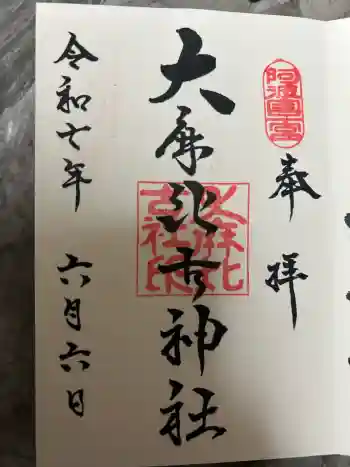 阿波國一宮
奉拝
大麻比古神社
大麻比古社印
令和七年 六月六日